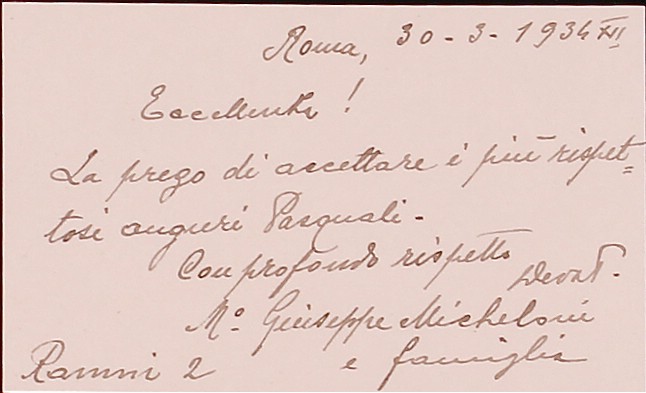 Roma, 30-3-1934 XII
Eccellenza!
La prego di accettare i più rispet=
tosi auguri Pasquali-
Con profondo rispetto
Devot.
M.o Giuseppe Micheloni
e famiglia
Ramni 2